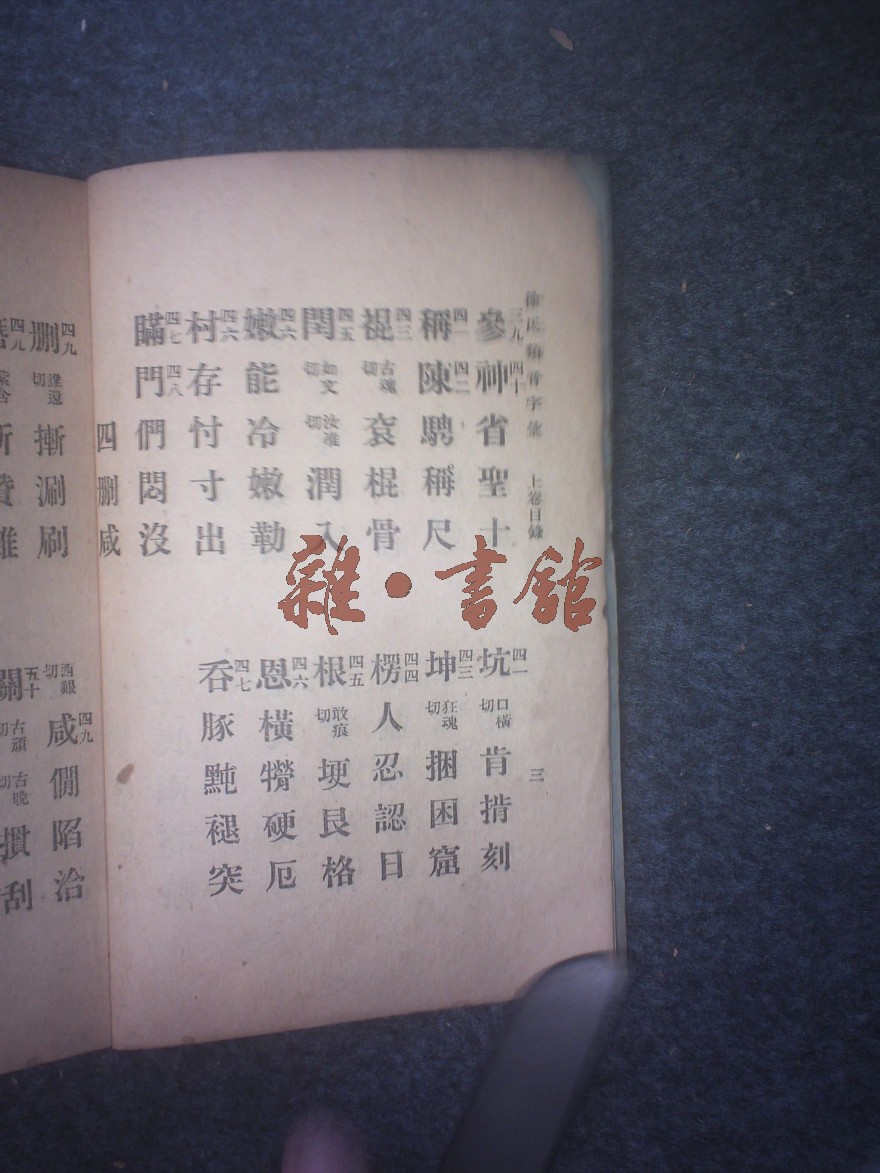 徐氏類音字彙 上卷目錄 三
參三九 神四十 省 聖 十
稱四一 陳四二 騁 稱 尺
裩四三 古魂切 袞 棍 骨
閏四五 如文切 汝准切 潤 入
嫩四六 能 冷 嫩 勒
村四六 存 忖 寸 出
瞞四七 門四八 們 悶 沒
坑四一 口橫切 肯 掯 刻
坤四三 狂魂切 捆 困 窟
楞四四 人 忍 認 日
根四五 敢痕切 埂 艮 格
恩四六 橫 硬 厄
吞四七 豚 黗 褪 突
四 刪 咸
刪四九 誰還切 摲 涮 刷
咸四九 僩 陷 洽
四九
關五十 古頑切 古晚切 摜 刮